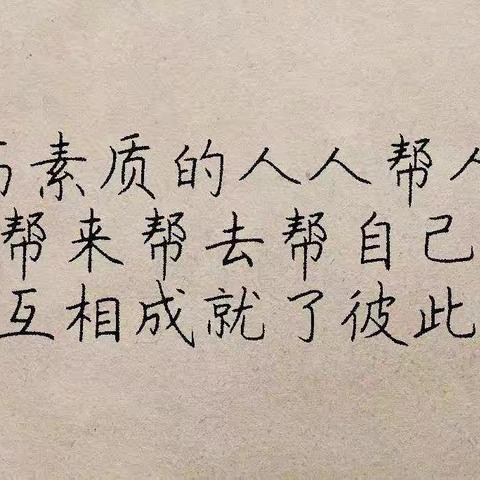 素质的人人帮人
帮来帮去帮自己
互相成就了彼此